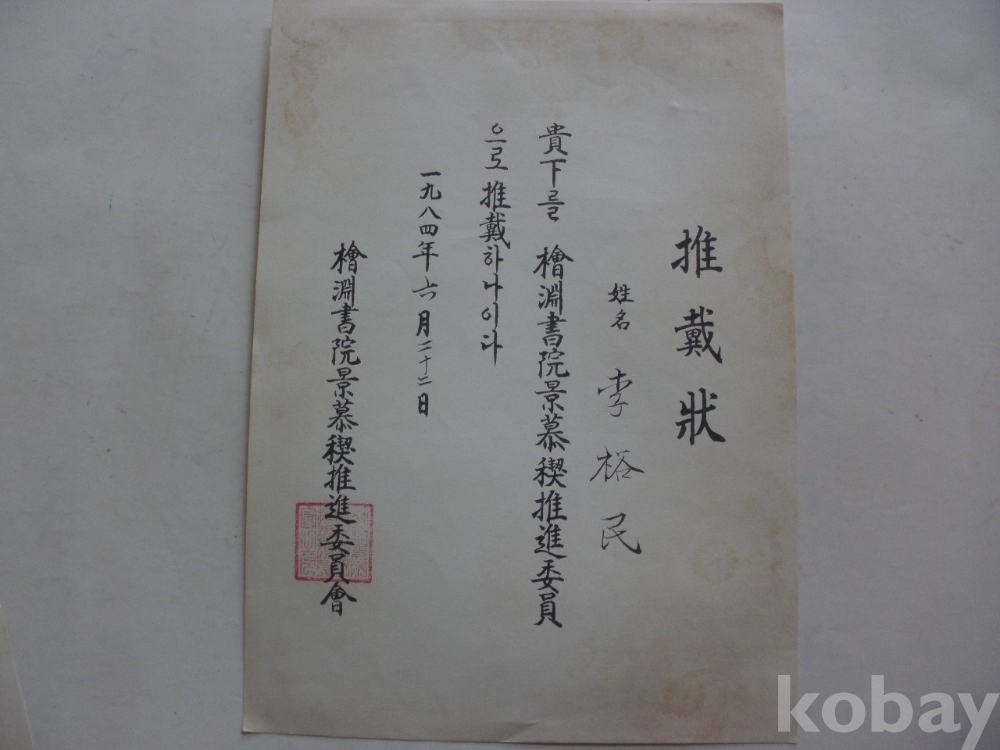 推戴狀
姓名 李裕民
貴下를 檜淵書院景慕稧推進委員
으로 推戴하나이다
一九八四年 六月二十二日
檜淵書院景慕稧推進委員會
kobay